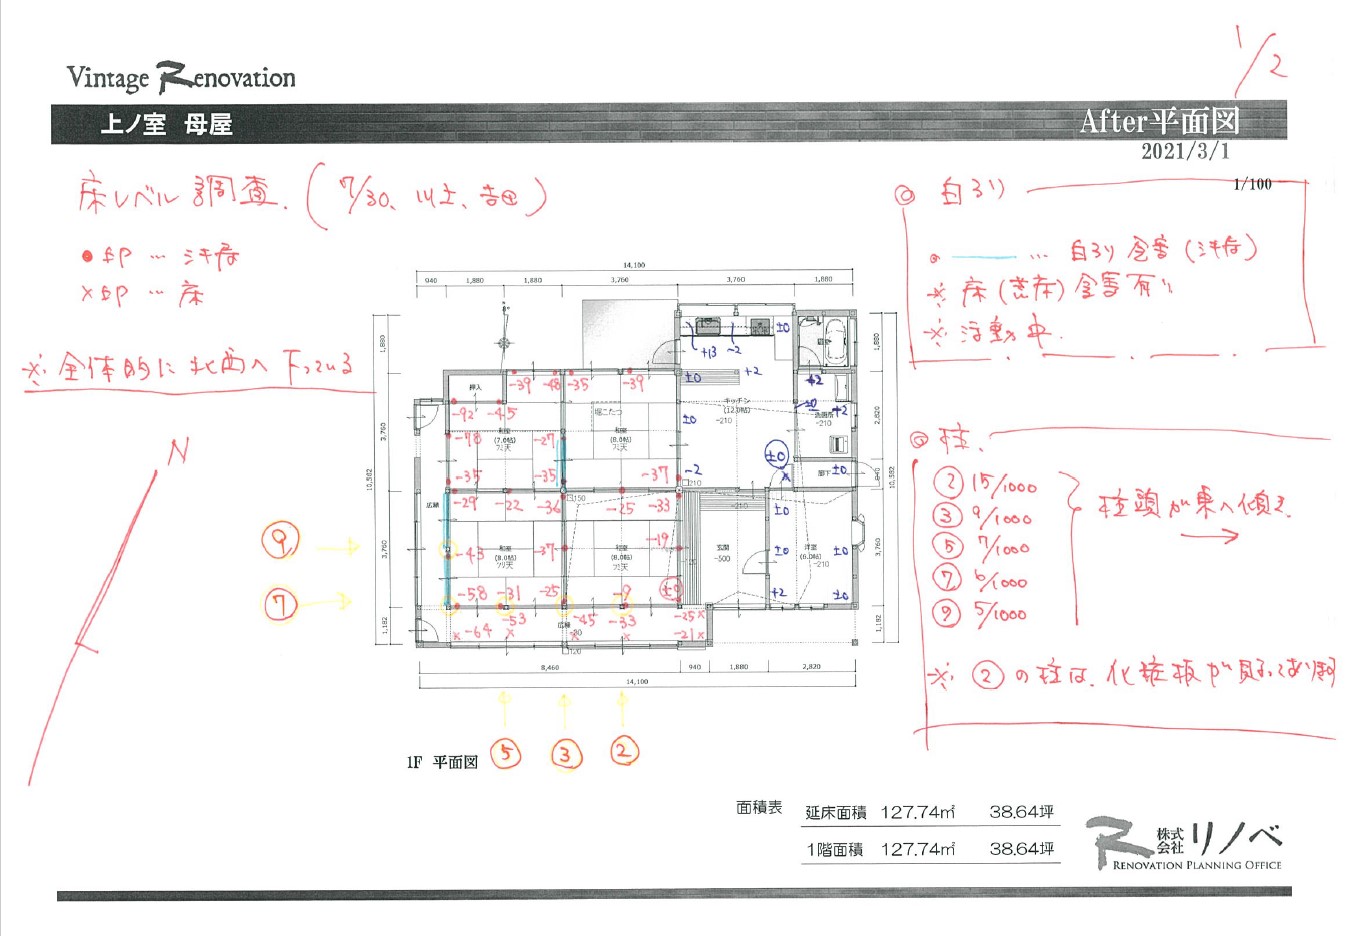 1/2
Vintage Renovation
上ノ室 母屋
After平面図
2021/3/1
1/100
床レベル調査.(7/30、川上、吉田)
●印 … シキ居
×印 … 床
※全体的に北西へ下っている
N
◎ 白ろり
… 白ろり食害(シキ居)
※ 床(荒床)食害有り
※ 活動中.
◎ 柱.
② 15/1000
③ 9/1000
⑤ 7/1000
⑦ 6/1000
⑨ 5/1000
柱頭が東へ傾き.
※ ②の柱は、化粧板が
14,100
940 1,880 1,880 3,760 3,760 1,880
1,880
3,760
10,582
3,760
1,182
1,880
2,820
940
10,582
3,760
1,182
±0
+13 -2
+2
±0
-39 -48 -35 -39
押入
-92 -45
堀こたつ
キッチン
(12.0帖)
-210
±0
+2
±0
+2
洗面所
-210
-78
和室
(7.0帖)
-27
和室
(8.0帖)
-35 -35 -37
-2
±0
廊下
±0
広縁
-29 -22 -36 -25 -33
150
210
-210
±0
-43
和室
(8.0帖)
-37
和室
(8.0帖)
-19
玄関
-500
±0
洋室
(6.0帖)
-210
±0
-58 -31 -25 -9 ±0
+2 ±0
広縁
-64 -53 -45 -33 -25
-21
120
8,460 940 1,880 2,820
14,100
⑨
⑦
⑤ ③ ②
1F 平面図
面積表
延床面積 127.74㎡ 38.64坪
1階面積 127.74㎡ 38.64坪
株式会社 リノベ
RENOVATION PLANNING OFFICE